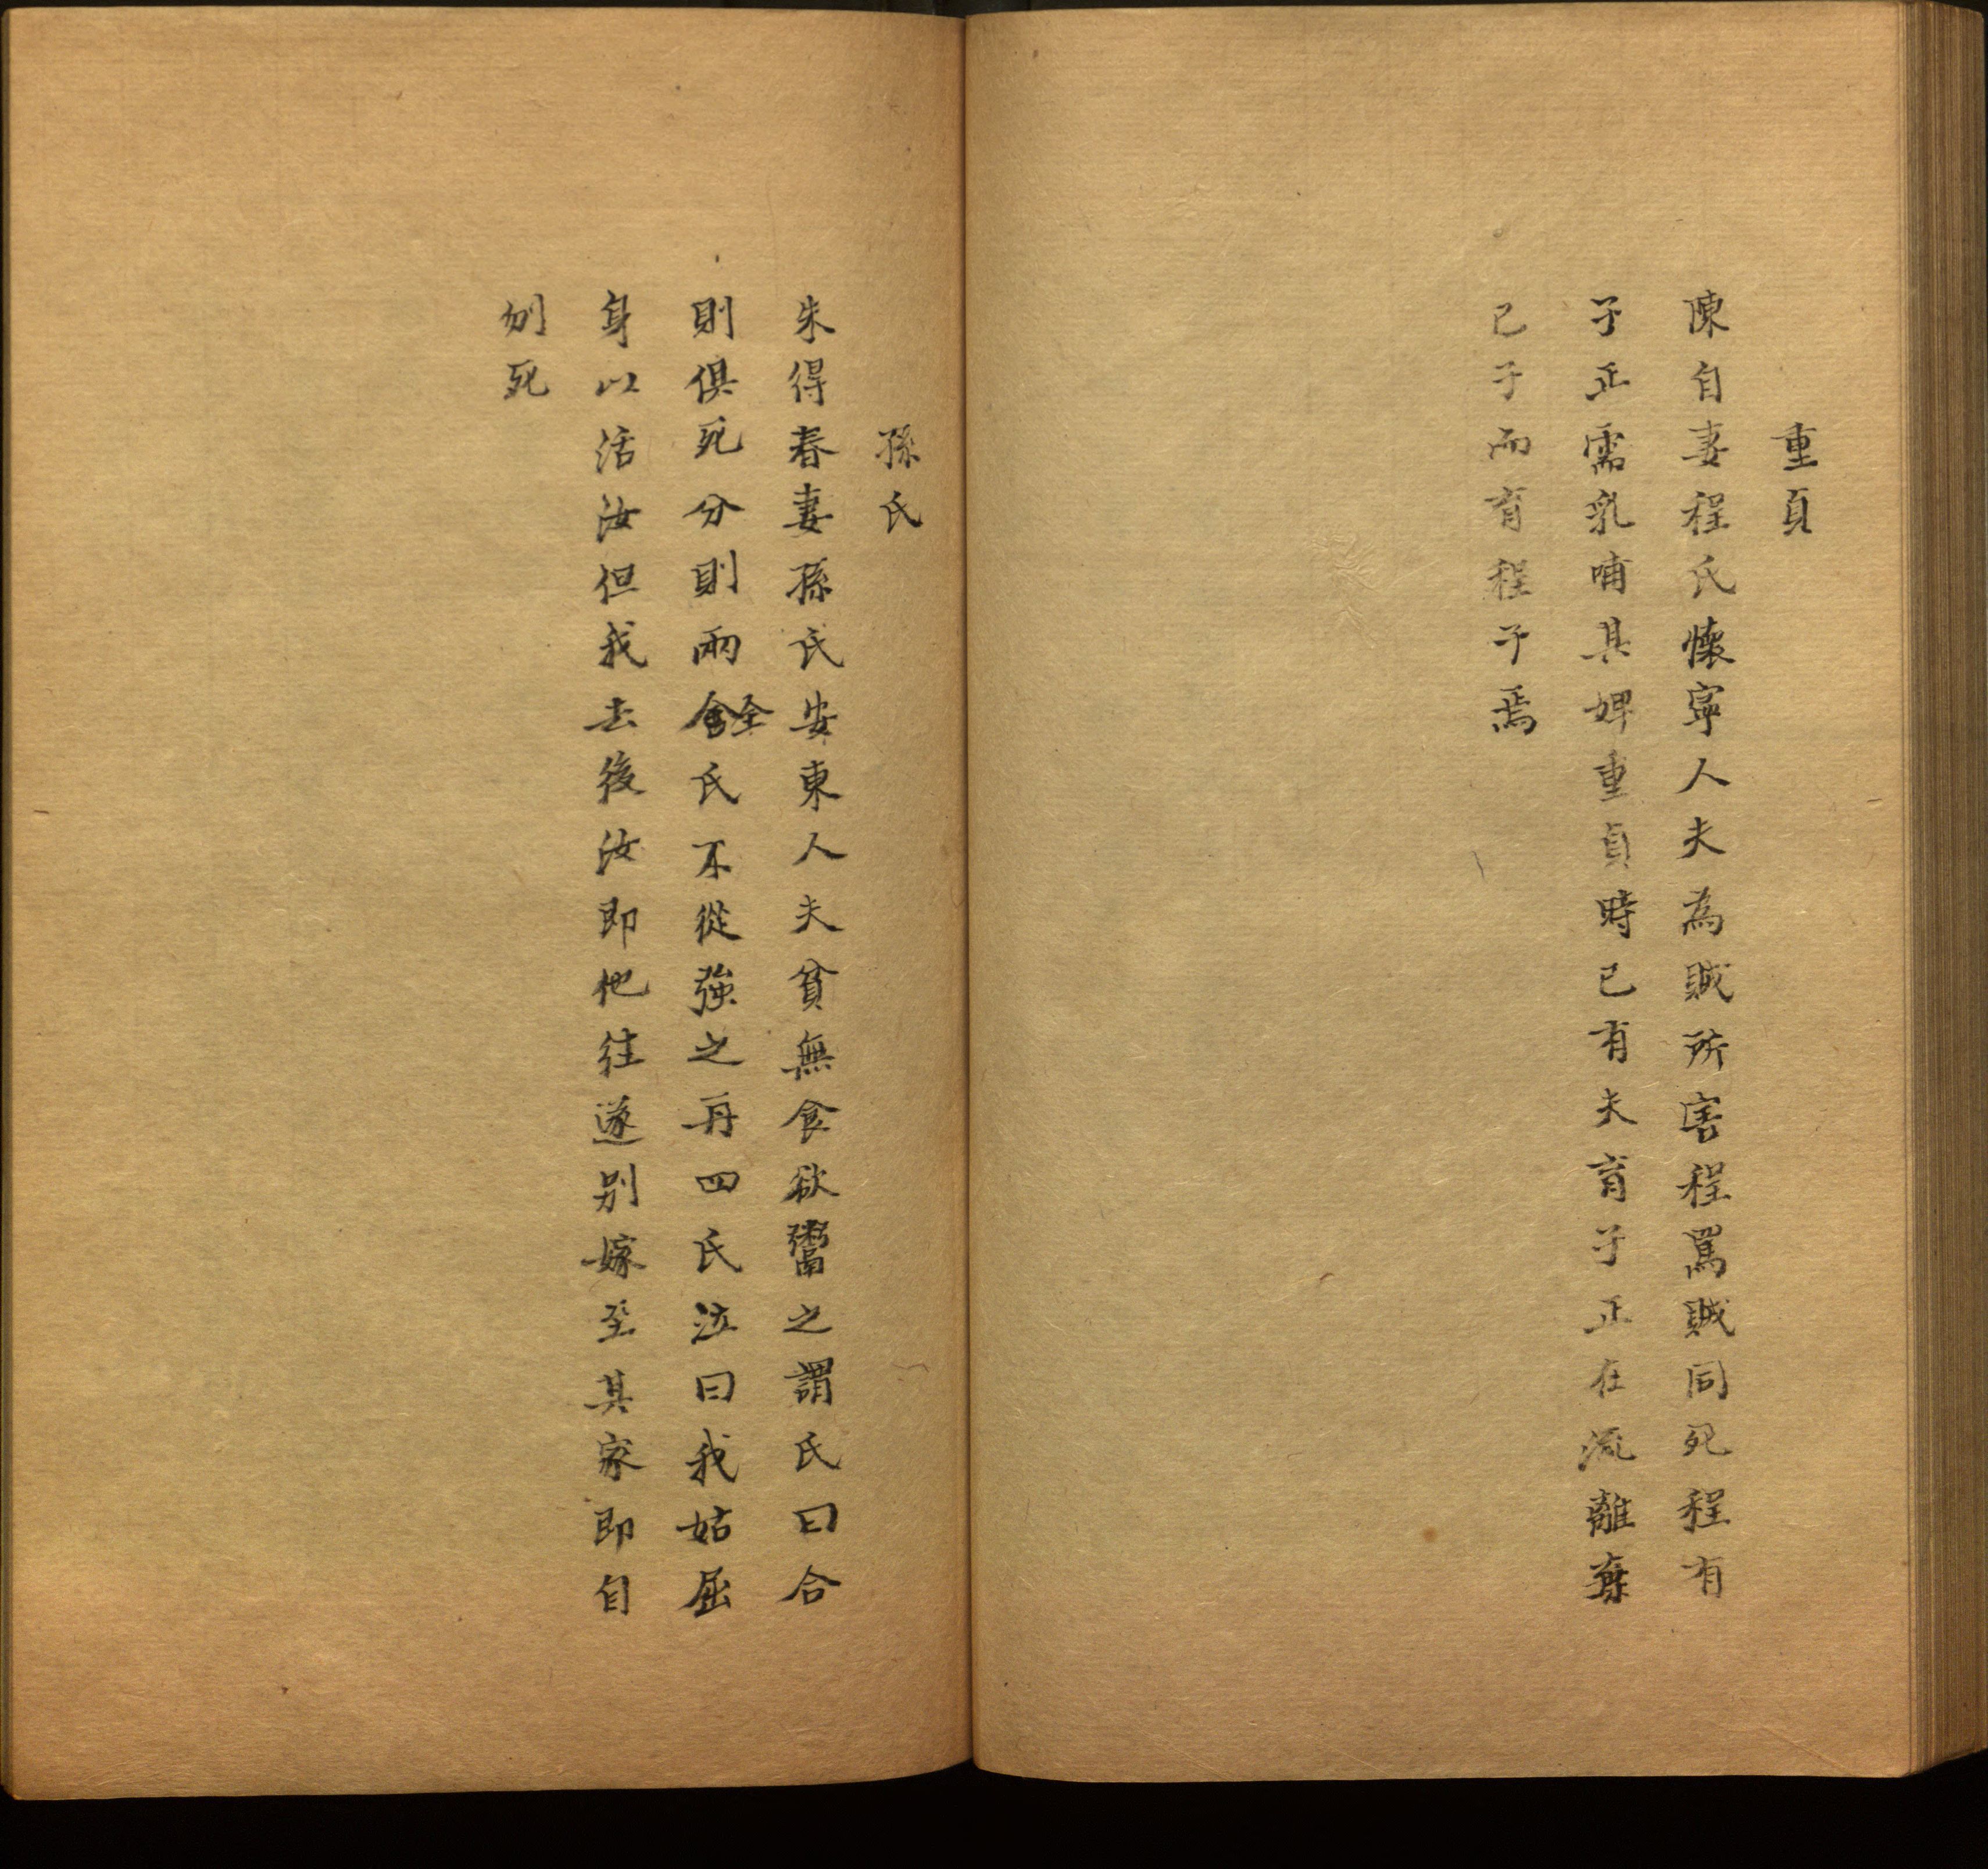 重貞
陳自妻程氏懷寧人夫為賊所害程罵賊同死程有
子正需乳哺其婢重貞時已有夫育子正在流離棄
已子而育程子焉
孫氏
朱得春妻孫氏安東人夫貧無食欲鬻之謂氏曰合
則俱死分則兩全氏不從強之再四氏泣曰我姑屈
身以活汝但我去後汝即他往遂別嫁至其家即自
刎死